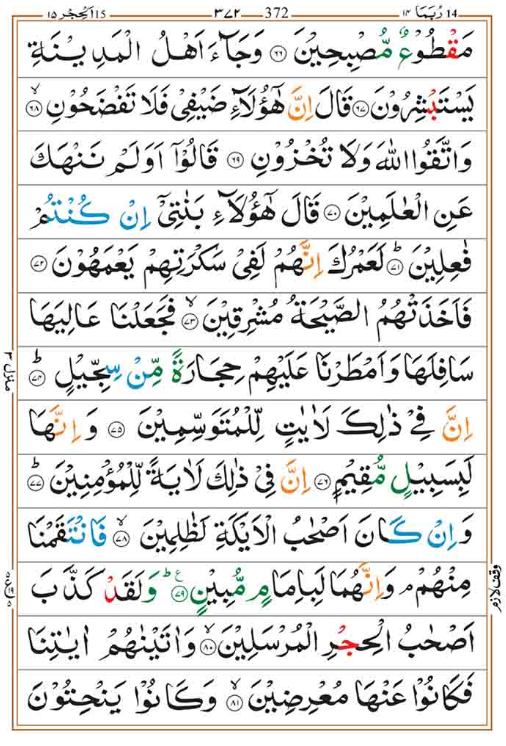 15 اَلْحِجْر ١٥ ٣٧٢ 372 رُبَمَا ١٤ 14
مَقْطُوْعٌ مُّصْبِحِيْنَ ۝٦٦ وَجَآءَ اَهْلُ الْمَدِيْنَةِ
يَسْتَبْشِرُوْنَ ۝٦٧ قَالَ اِنَّ هٰٓؤُلَآءِ ضَيْفِيْ فَلَا تَفْضَحُوْنِ ۙ۝٦٨
وَاتَّقُوا اللّٰهَ وَلَا تُخْزُوْنِ ۝٦٩ قَالُوْٓا اَوَلَمْ نَنْهَكَ
عَنِ الْعٰلَمِيْنَ ۝٧٠ قَالَ هٰٓؤُلَآءِ بَنٰتِيْٓ اِنْ كُنْتُمْ
فٰعِلِيْنَ ؕ۝٧١ لَعَمْرُكَ اِنَّهُمْ لَفِيْ سَكْرَتِهِمْ يَعْمَهُوْنَ ۝٧٢
فَاَخَذَتْهُمُ الصَّيْحَةُ مُشْرِقِيْنَ ۙ۝٧٣ فَجَعَلْنَا عَالِيَهَا
سَافِلَهَا وَاَمْطَرْنَا عَلَيْهِمْ حِجَارَةً مِّنْ سِجِّيْلٍ ؕ۝٧٤
اِنَّ فِيْ ذٰلِكَ لَاٰيٰتٍ لِّلْمُتَوَسِّمِيْنَ ۝٧٥ وَاِنَّهَا
لَبِسَبِيْلٍ مُّقِيْمٍ ۝٧٦ اِنَّ فِيْ ذٰلِكَ لَاٰيَةً لِّلْمُؤْمِنِيْنَ ؕ۝٧٧
وَاِنْ كَانَ اَصْحٰبُ الْاَيْكَةِ لَظٰلِمِيْنَ ۙ۝٧٨ فَانْتَقَمْنَا
مِنْهُمْ ۘ وَاِنَّهُمَا لَبِاِمَامٍ مُّبِيْنٍ ؕ۝٧٩ وَلَقَدْ كَذَّبَ
اَصْحٰبُ الْحِجْرِ الْمُرْسَلِيْنَ ۙ۝٨٠ وَاٰتَيْنٰهُمْ اٰيٰتِنَا
فَكَانُوْا عَنْهَا مُعْرِضِيْنَ ۙ۝٨١ وَكَانُوْا يَنْحِتُوْنَ
منزل ٣
وقف لازم